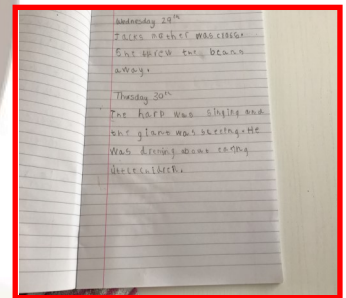 Wednesday 29th
Jacks mother was cross.
She threw the beans
away.
Thursday 30th
The harp was singing and
the giant was sleeping. He
was about eating